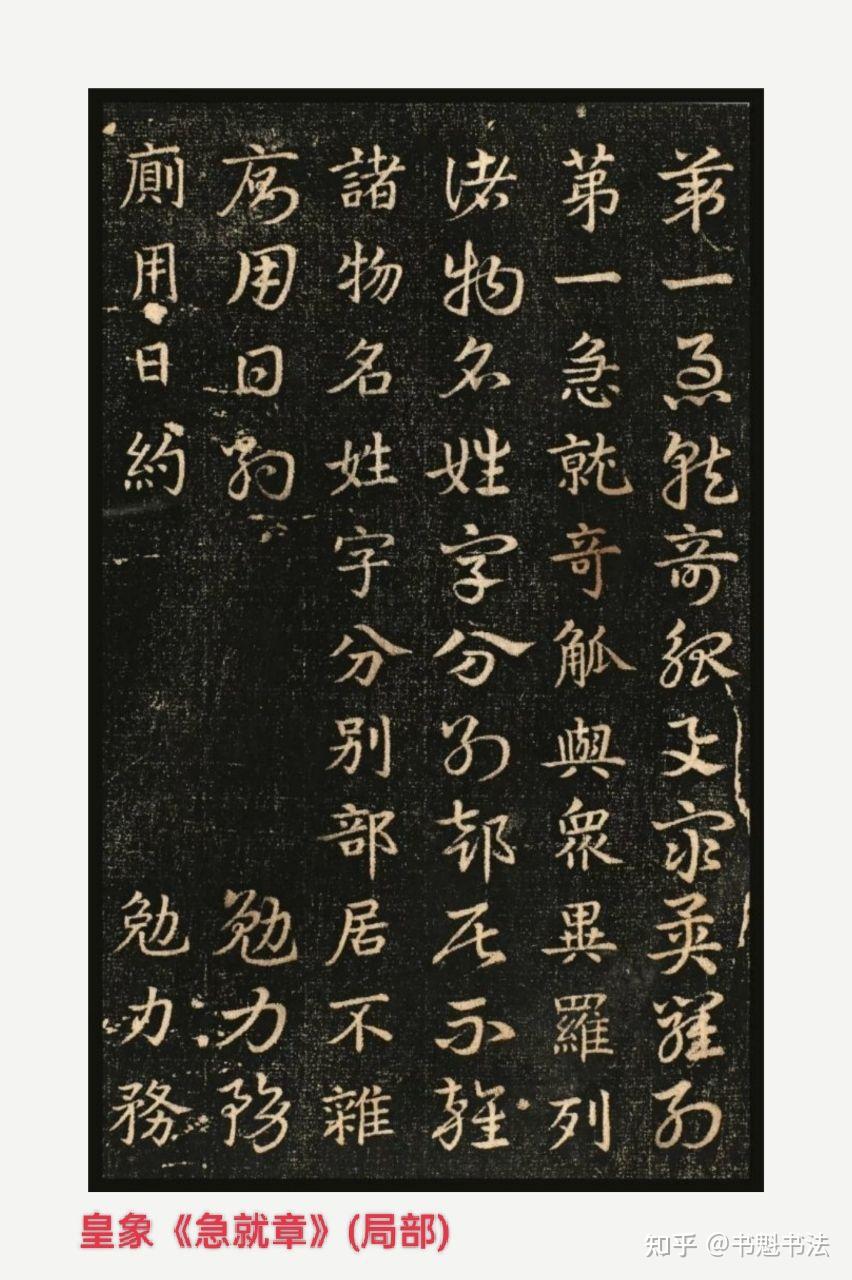 苐一急就奇觚與衆異羅列
苐一急就奇觚與衆異羅列
諸物名姓字分别部居不雜
諸物名姓字分别部居不雜
廁用日約 勉力務
廁用日約 勉力務
皇象《急就章》(局部)
知乎 @书魁书法